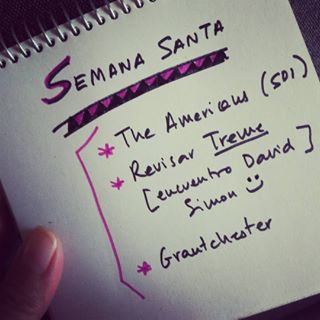 SEMANA SANTA
* The Americans (S01)
* Revisar Treme
[encuentro David]
Simon ☺
* Grantchester